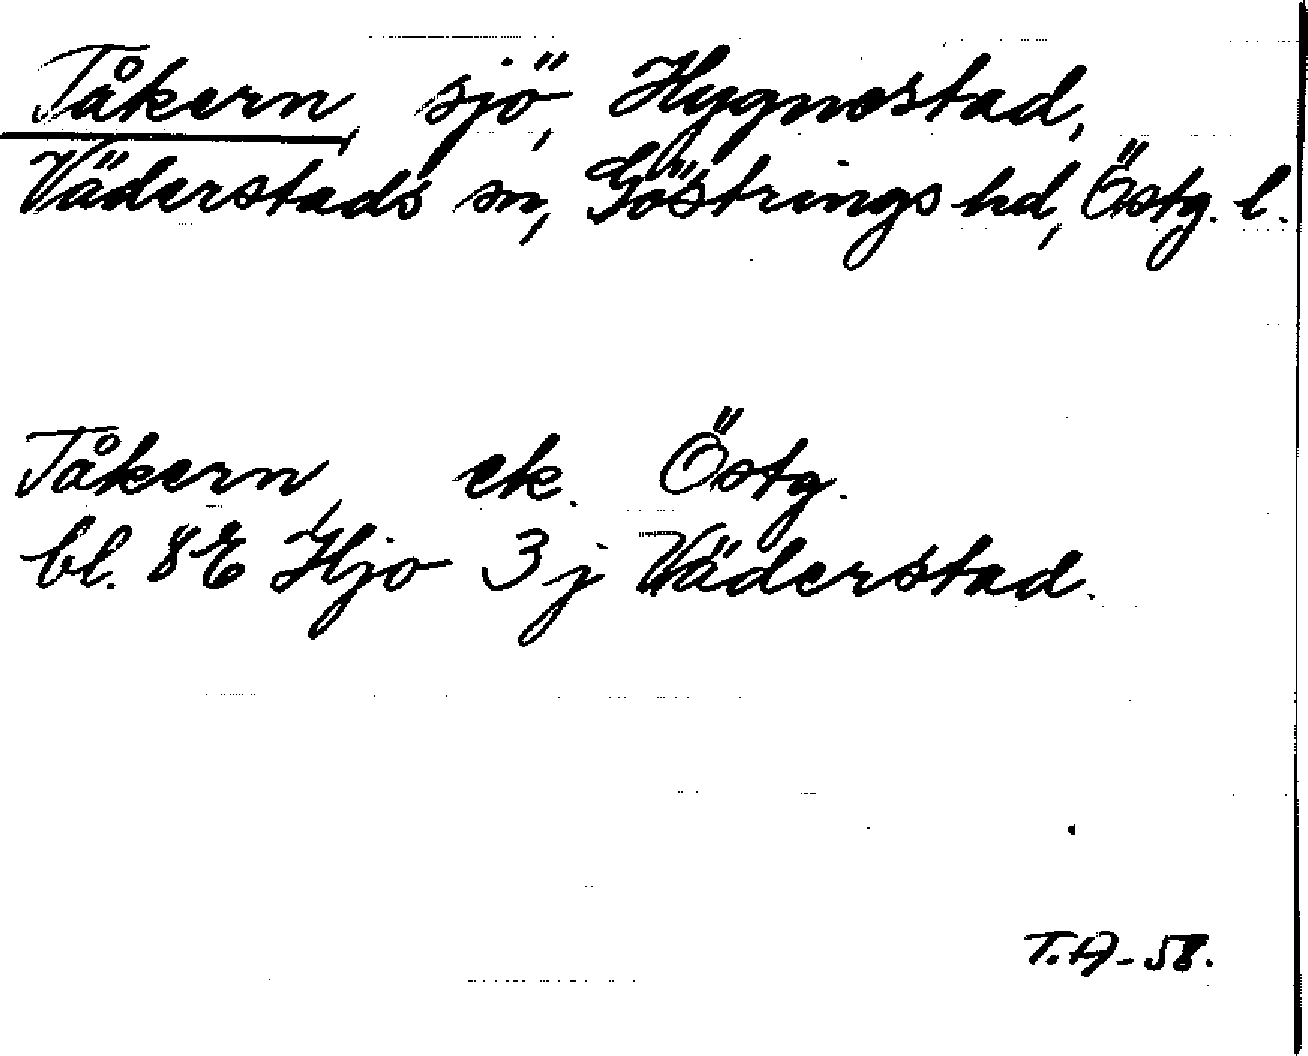 Tåkern, sjö, Hygnestad,
Väderstads sn, Göstrings hd, Östg. l.
Tåkern, ek. Östg.
bl. 8E Hjo 3j Väderstad.
T.A-58.